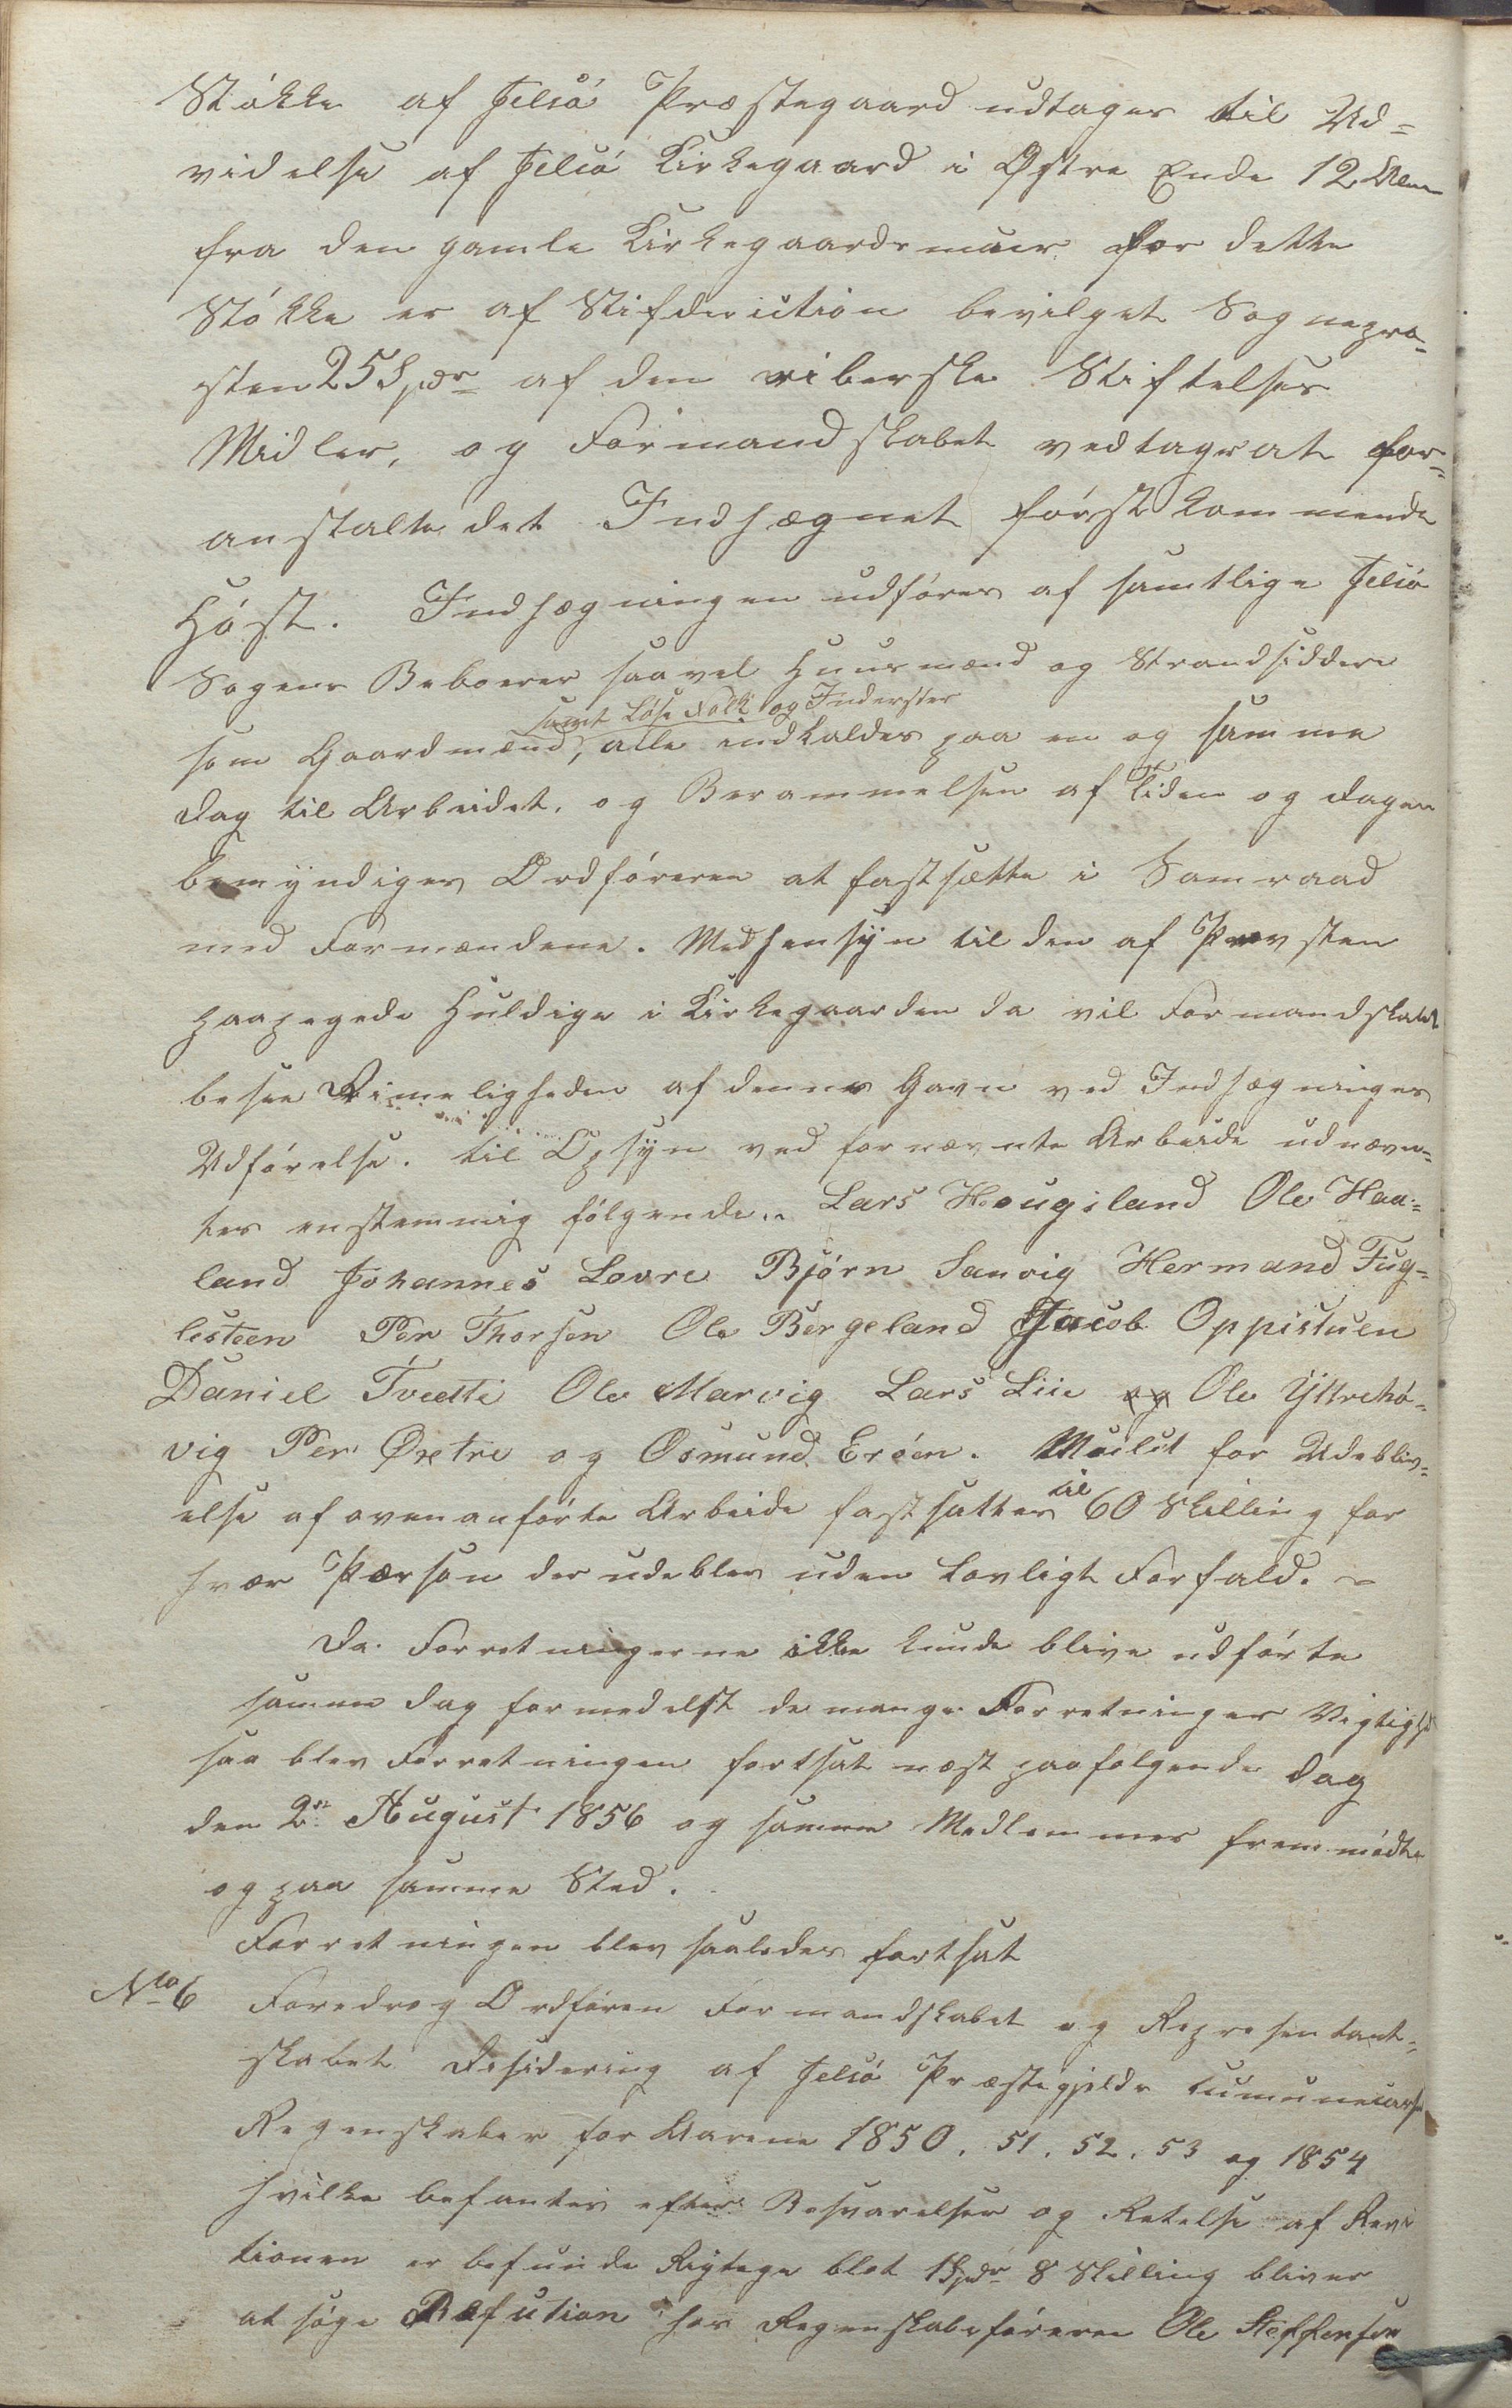 Støkke af Jelsø Præstegaard udtages til Ud=
videlse af Jelsø Kirkegaard i Østre Ende 12 Alen
fra den gamle Kirkegaardsmuur for dette
Støkke er af Stifdirection bevilget Sognepræ=
sten 25 Spdr af den riberske Stiftelses
Midler, og Formandskabet vedtager at for=
anstalte det Indhægnet førstkommende
Høst. Indhægningen udføres af samtlige Jelsø
Sogens Beboerer saavel Huusmænd og Strandsiddere
samt Løse Folk og Inderster
som Gaardmænd, alle indkaldes paa en og samme
Dag til Arbeidet, og Berammelsen af Tiden og Dagen
bemyndiges Ordføreren at fastsætte i Samraad
med Formændene. Med Hensyn til den af Provsten
paapegede Huldige i Kirkegaarden da vil Formandskabet
besee Rimeligheden af dennes Gavn ved Indhægninges
Udførelse. til Opsyn ved fornævnte Arbeide udnævn=
tes enstemmig følgende.. Lars Hougeland Ole Haa=
land Johannes Lovre Bjørn Sanvig Hermand Fug=
lesteen Per Thorsen Ole Bergeland Jacob Oppistuen
Daniel Tveete Ole Marvig Lars Liie og Ole Yttrehø=
vig Per Øxstre og Osmund Erøen. Mulct for Udebliv=
else af ovenanførte Arbeide fastsattes til 60 Skilling for
hver Person der udeblev uden Lovligt Forfald. ~
Da Forretningerne ikke kunde blive udførte
samme Dag formedelst de mange Forretninger Vigtighd
saa blev Forretningen fortsat næst paafølgende Dag
den 2den August 1856 og samme Medlemmer fremmødte
og paa samme Sted.
Forretningen blev saaledes fortsat
No 6 Foredrog Ordføren Formandskabet og Representant=
skabet Desidering af Jelsø Præstegjelds
Regenskaber for Aarene 1850. 51. 52. 53 og 1854
hvilke befantes efter Besvarelser og Retelse af Revi
tionen er befunde Rigtege blot 1 Spdr 8 Skilling bliver
at søge Refution hos Regenskabsføreren Ole Steffensen